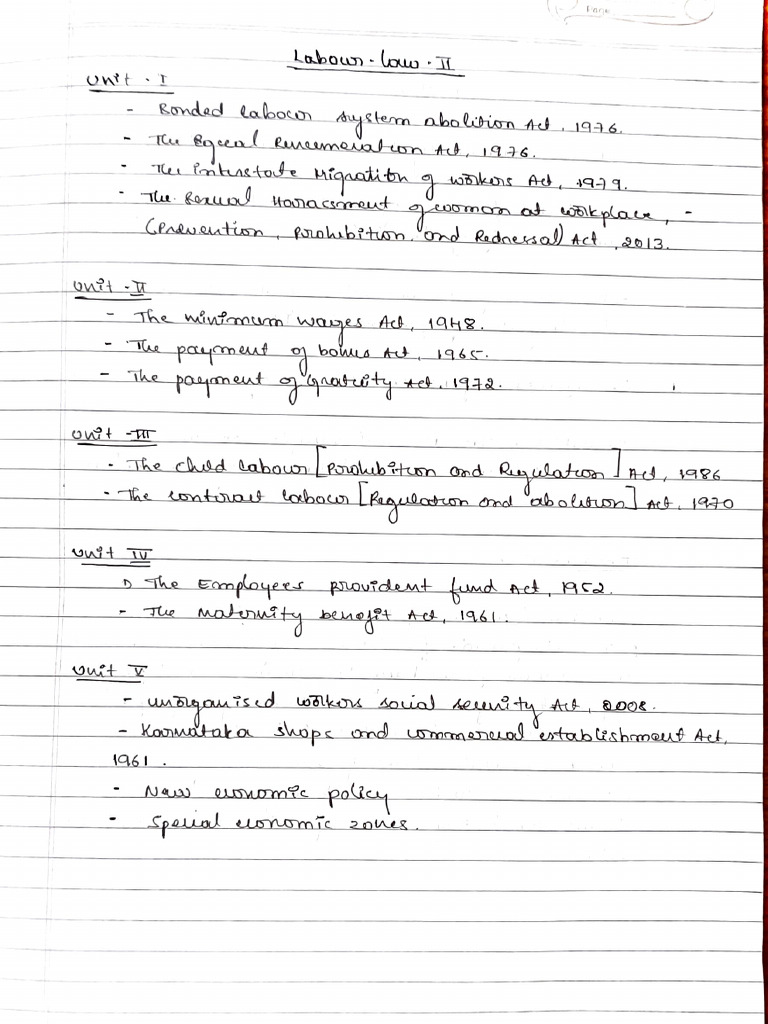 Page
Labour-law-II
Unit-I
- Bonded labour system abolition Act, 1976.
- The Equal Renumeration Act, 1976.
- The interstate Migration of workers Act, 1979.
- The Sexual Haracsment of woman at workplace, -
(Prevention, Prohibition and Redressal) Act, 2013.
Unit-II
- The minimum wages Act, 1948.
- The payment of bonus Act, 1965.
- The payment of Gratuity Act, 1972.
Unit-III
- The child labour [Prohibition and Regulation] Act, 1986
- The contract labour [Regulation and abolition] Act, 1970
Unit IV
1) The Employees provident fund Act, 1952.
- The Maternity benefit Act, 1961.
Unit V
- unorganised workers social security Act, 2008.
- Karnataka shops and commercial establishment Act,
1961.
- New economic policy
- Special economic zones.